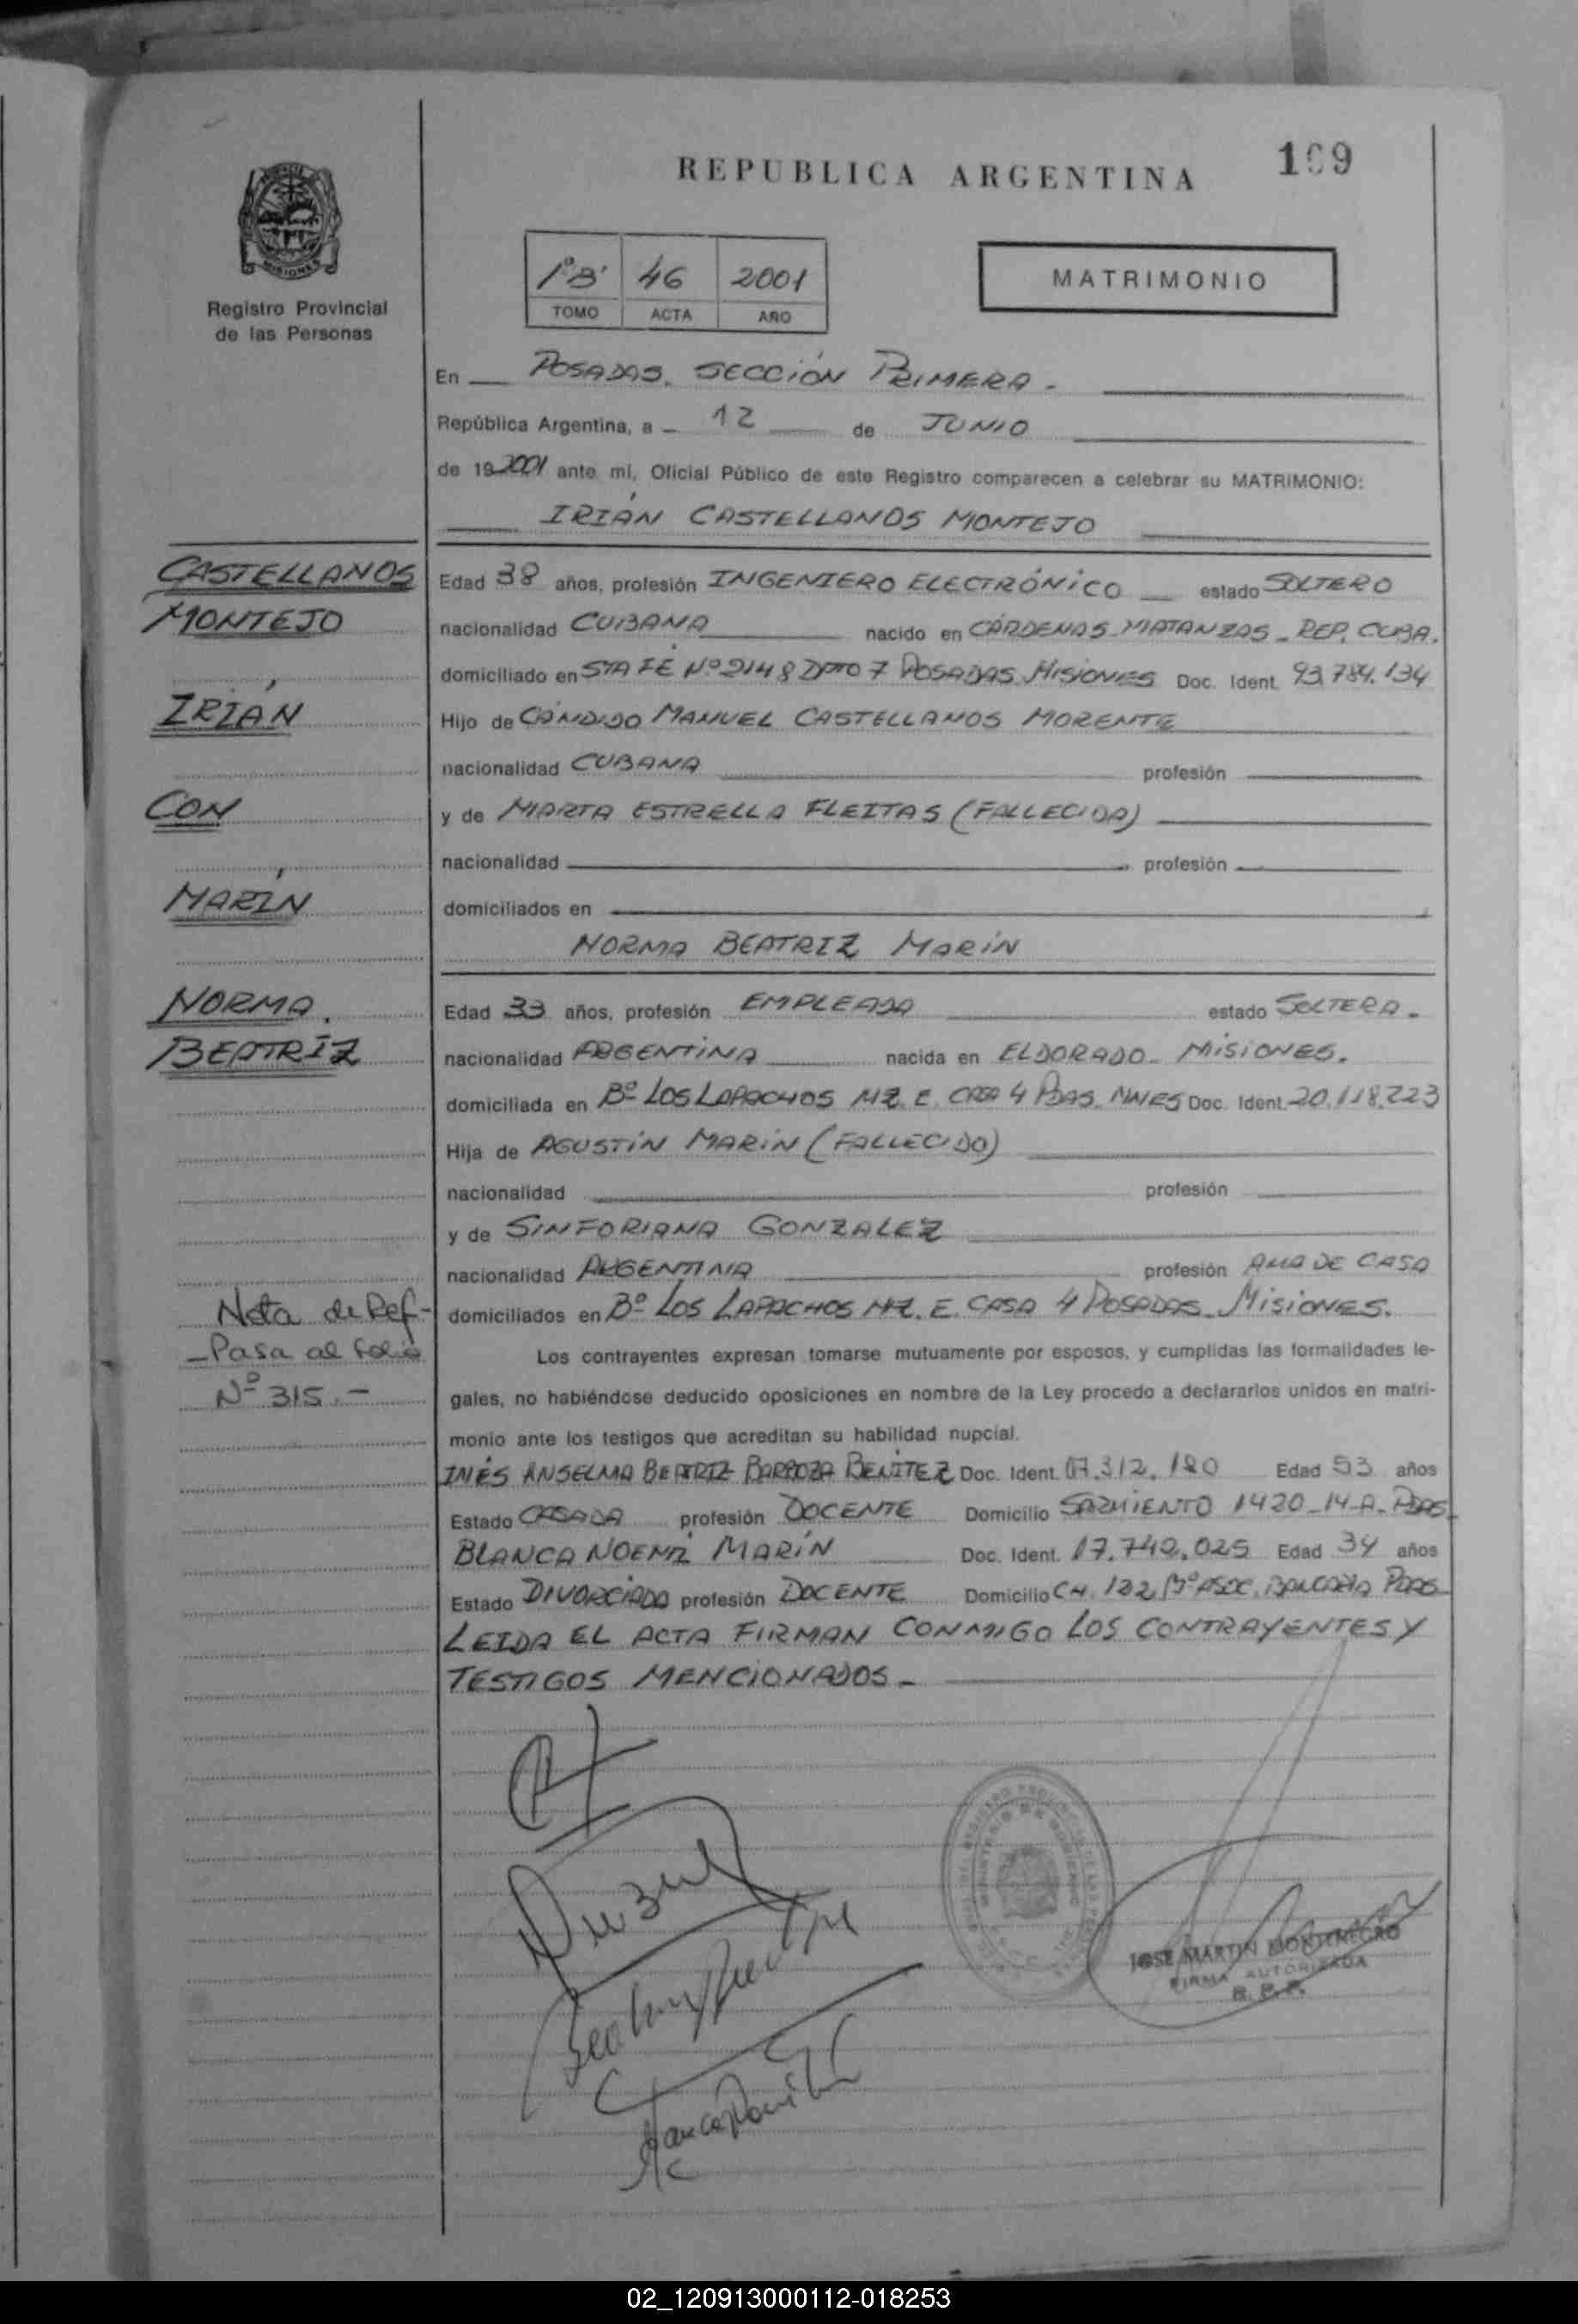 REPUBLICA ARGENTINA
109
MISIONES
Registro Provincial
de las Personas
1º"B" 46 2001
TOMO ACTA AÑO
MATRIMONIO
En POSADAS. SECCIÓN PRIMERA.
República Argentina, a 12 de JUNIO
de 19 2001 ante mí, Oficial Público de este Registro comparecen a celebrar su MATRIMONIO:
IRIÁN CASTELLANOS MONTEJO
CASTELLANOS
MONTEJO
IRIÁN
CON
MARÍN
NORMA.
BEATRIZ
Edad 38 años, profesión INGENIERO ELECTRÓNICO estado SOLTERO
nacionalidad CUBANA nacido en CÁRDENAS-MATANZAS-REP. CUBA.
domiciliado en STA FÉ Nº 2148 DPTO 7 POSADAS. MISIONES Doc. Ident. 93.784.134
Hijo de CÁNDIDO MANUEL CASTELLANOS MORENTE
nacionalidad CUBANA profesión
y de MARTA ESTRELLA FLEITAS (FALLECIDA)
nacionalidad profesión
domiciliados en
NORMA BEATRIZ MARÍN
Edad 33 años, profesión EMPLEADA estado SOLTERA.
nacionalidad ARGENTINA nacida en ELDORADO-MISIONES.
domiciliada en Bº LOS LAPACHOS MZ. E. CASA 4 PDAS. MNES Doc. Ident. 20.118.223
Hija de AGUSTÍN MARÍN (FALLECIDO)
nacionalidad profesión
y de SINFORIANA GONZALEZ
nacionalidad ARGENTINA profesión AMA DE CASA
domiciliados en Bº LOS LAPACHOS MZ. E. CASA 4 POSADAS-MISIONES.
Nota de Ref-
-Pasa al folio
Nº 315.-
Los contrayentes expresan tomarse mutuamente por esposos, y cumplidas las formalidades le-
gales, no habiéndose deducido oposiciones en nombre de la Ley procedo a declararlos unidos en matri-
monio ante los testigos que acreditan su habilidad nupcial.
INÉS ANSELMA BEATRIZ BARBOZA BENÍTEZ Doc. Ident. Edad 53 años
Estado CASADA profesión DOCENTE Domicilio SARMIENTO 1420-14-A-PDAS.
BLANCA NOEMÍ MARÍN Doc. Ident. 17.740.025 Edad 34 años
Estado DIVORCIADA profesión DOCENTE Domicilio CH. 132 PDAS
LEIDA EL ACTA FIRMAN CONMIGO LOS CONTRAYENTES Y
TESTIGOS MENCIONADOS-
JOSE MARTIN MONTENEGRO
FIRMA AUTORIZADA
R. P. P.
02_120913000112-018253